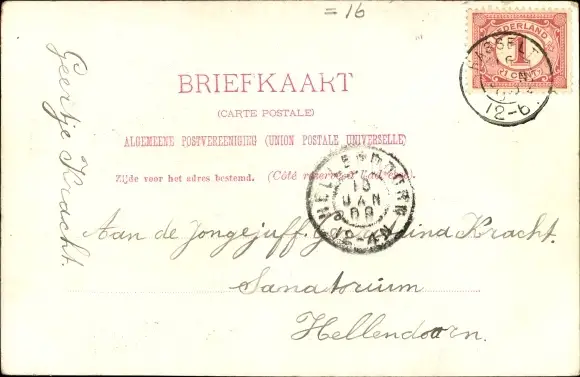 = 16
NEDERLAND
1
(1 CENT)
HASSELT
12-6
BRIEFKAART
(CARTE POSTALE)
ALGEMEENE POSTVEREENIGING (UNION POSTALE UNIVERSELLE)
Zijde voor het adres bestemd. (Côté réservé à l'adresse.)
HELLENDOORN
10
JAN
09
Geertje Kracht.
Aan de Jongejuff. Kracht.
Sanatorium
Hellendoorn.